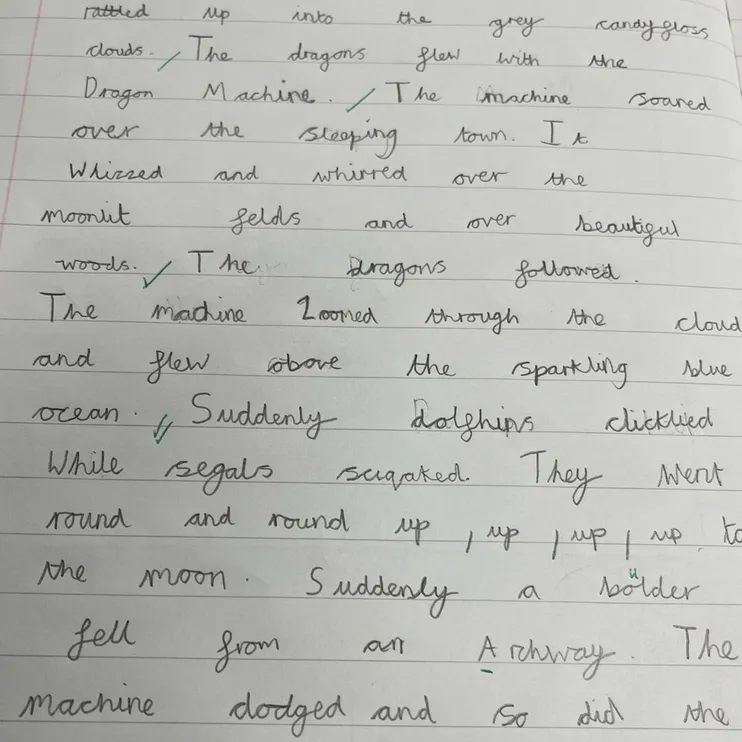 rattled up into the grey candy gloss
clouds. The dragons flew with the
Dragon Machine. The machine soared
over the sleeping town. It
Whizzed and whirred over the
moonlit felds and over beautiful
woods. The dragons followed.
The machine Zoomed through the cloud
and flew above the sparkling blue
ocean. Suddenly dolghins clicklied
While segals suqaked. They went
round and round up, up, up, up to
the moon. Suddenly a boulder
fell from an Archway. The
machine dodged and so did the